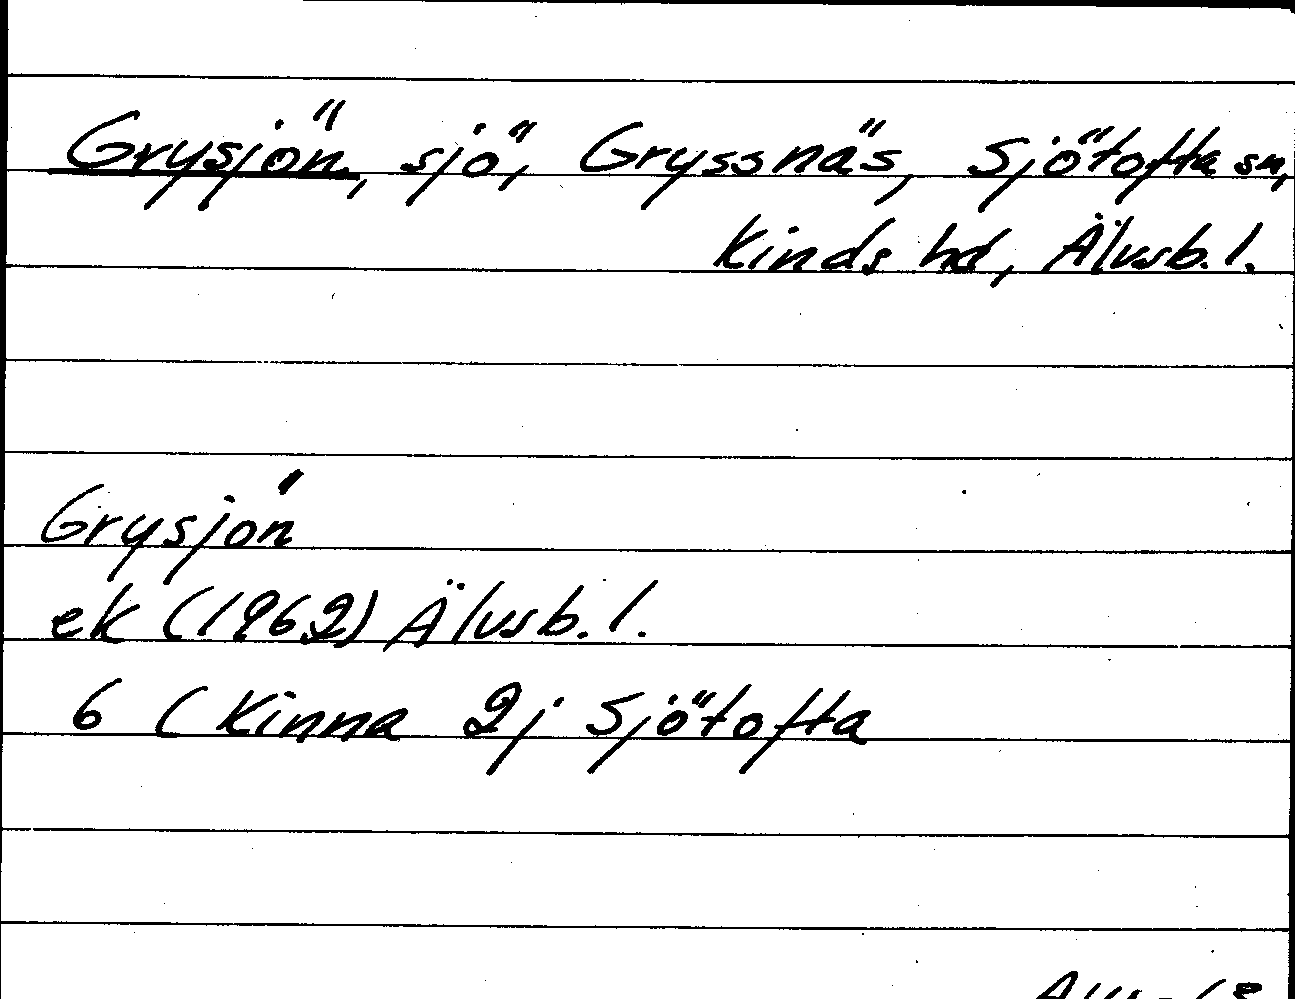 Grysjön, sjö, Gryssnäs, Sjötofta sn,
Kinds hd, Älvsb. l.
Grysjön
ek (1962) Älvsb. l.
6 ( Kinna 2j Sjötofta